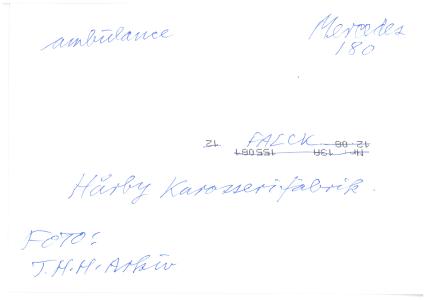 ambulance
Mercedes
180
FALCK
Hårby Karosserifabrik.
FOTO:
T.H.H. Arkiv